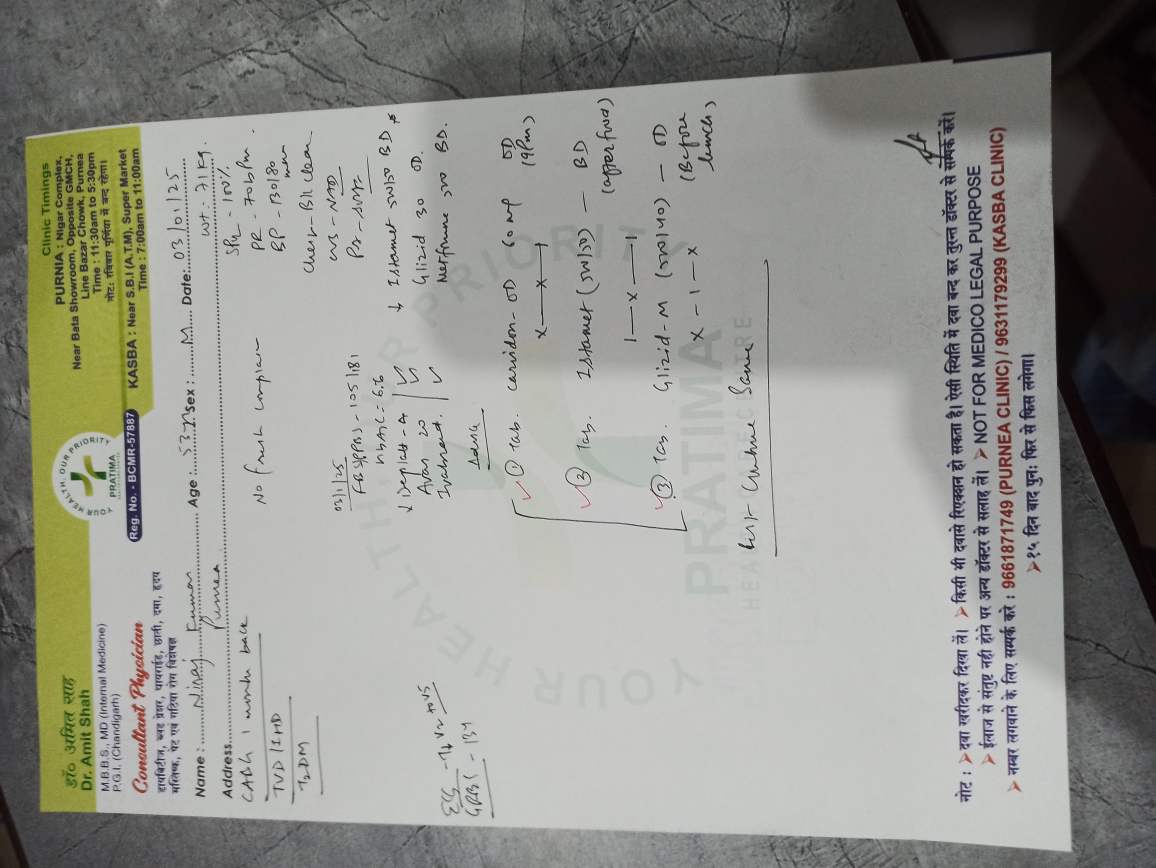 डॉ० अमित साह
Dr. Amit Shah
M.B.B.S., MD (Internal Medicine)
P.G.I. (Chandigarh)
Consultant Physician
डायबिटीज, ब्लड प्रेशर, थायराईड, छाती, दमा, हृदय
मस्तिष्क, पेट एवं गठिया रोग विशेषज्ञ
YOUR HEALTH, OUR PRIORITY
PRATIMA
Reg. No. - BCMR-57887
Clinic Timings
PURNIA : Nigar Complex,
Near Bata Showroom, Opposite GMCH,
Line Bazar Chowk, Purnea
Time : 11:30am to 5:30pm
नोट: रविवार पूर्णिया में बन्द रहेगा।
KASBA : Near S.B.I (A.T.M), Super Market
Time : 7:00am to 11:00am
Name : Kumar Age : 53 Sex : M Date: 03/01/25
Address Purnea wt - 71 kg.
CABG 1 month back
TVD/IHD
T2DM
No fresh complain
SPO2 - 100%
PR - 70bpm.
BP - 130/80
Chest - B/L clear
CVS - NAD
03/1/25
FBS/PPBS - 105/181
HbA1C = 6.6
Istamet 500/50 BD
Glizid 30 OD.
Metformine 500 BD.
GRBS - 134
Advice
① Tab. OD 60 mg OD
(9pm)
x — x — 1
② Tab. Istamet (500/50) — BD
(after food)
1 — x — 1
③ Tab. Glizid-M (500/40) — OD
(Before lunch)
x - 1 - x
Same
YOUR HEALTH, OUR PRIORITY
PRATIMA
नोट : ➤ दवा खरीदकर दिखा लें। ➤ किसी भी दवासे रिएक्शन हो सकता है। ऐसी स्थिति में दवा बन्द कर तुरन्त डॉक्टर से सम्पर्क करें।
➤ ईलाज से संतुष्ट नही होने पर अन्य डॉक्टर से सलाह लें। ➤ NOT FOR MEDICO LEGAL PURPOSE
➤ नम्बर लगवाने के लिए सम्पर्क करे : 9661871749 (PURNEA CLINIC) / 9631179299 (KASBA CLINIC)
➤ १५ दिन बाद पुनः फिर से फिस लगेगा।